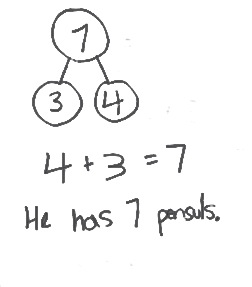 7
3 4
4 + 3 = 7
He has 7 pensuls.